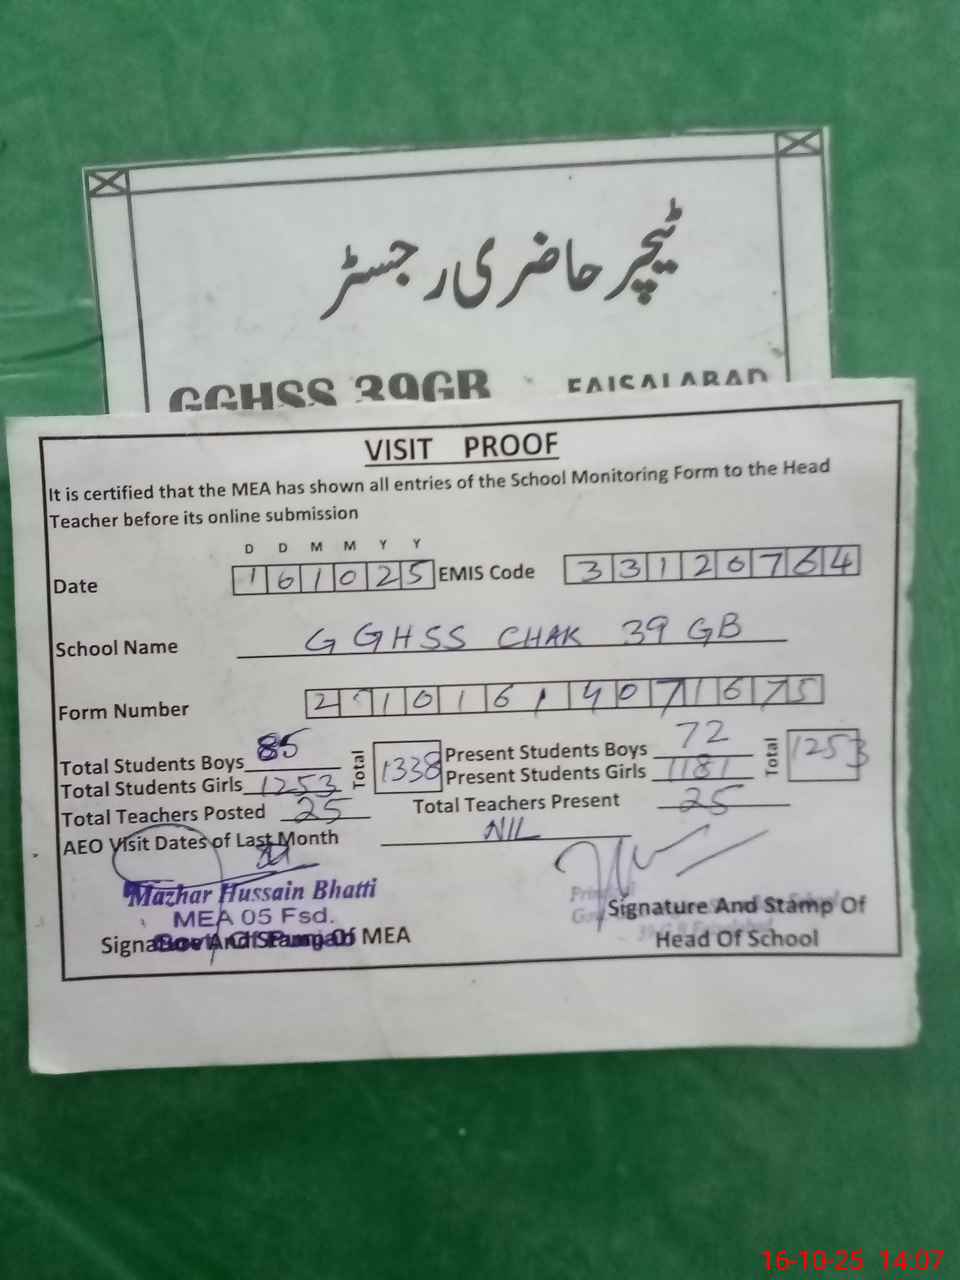 ٹیچر حاضری رجسٹر
GGHSS 39GB FAISALABAD
VISIT PROOF
It is certified that the MEA has shown all entries of the School Monitoring Form to the Head
Teacher before its online submission
D D M M Y Y
Date 161025 EMIS Code 33120764
School Name GGHSS CHAK 39 GB
Form Number
Total Students Boys 85 Total 1338 Present Students Boys 72 Total 1253
Total Students Girls 1253 Present Students Girls 1181
Total Teachers Posted 25 Total Teachers Present 25
AEO Visit Dates of Last Month NIL
Mazhar Hussain Bhatti
MEA 05 Fsd.
Govt. Of Punjab
Signature And Stamp Of MEA
Signature And Stamp Of
Head Of School
16-10-25 14:07